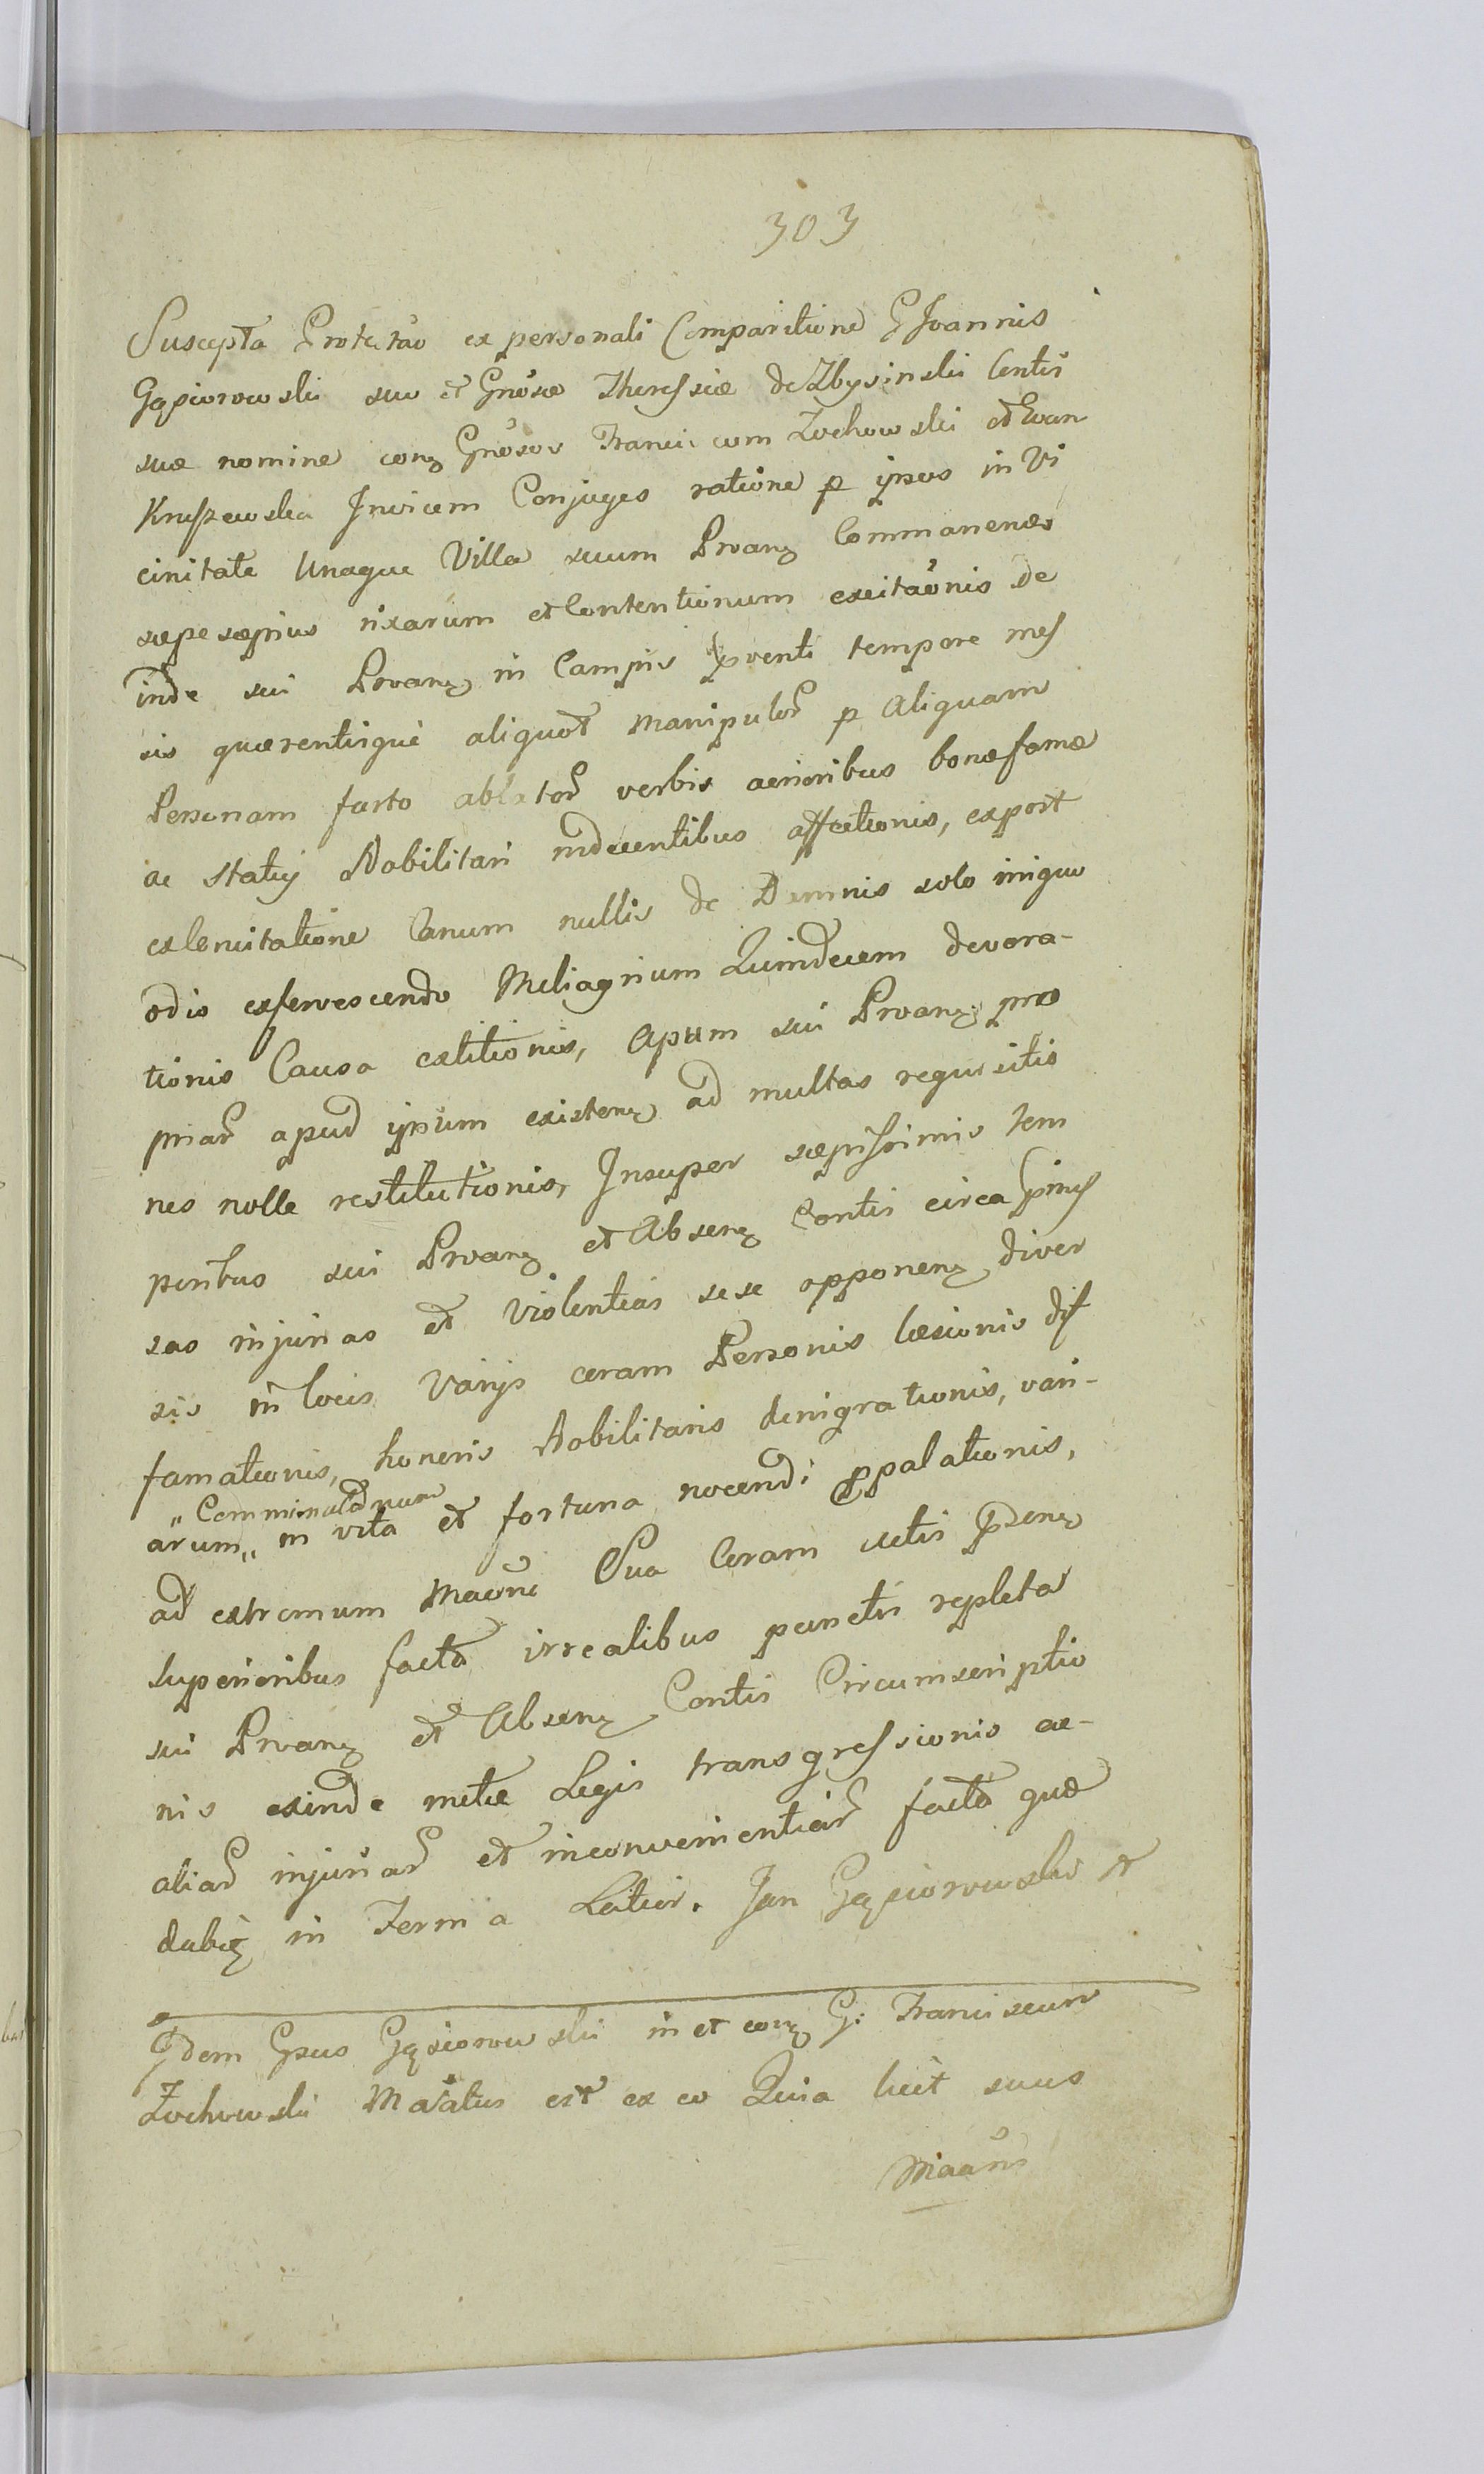 303
Suscepta Protestao ex personali Comparitione G Joannis
Gąsiorowski suo et Gnosæ Theressiæ de Zbysinskie Contis
suæ nomine conq Gnosos Francis cum Zochowski et Evan
Kruszewska Invicem Conjuges ratione p ipsos in Vi
cinitate Unaque Villa suum Prvanq Commanenes
sæpe sæpius rixarum et Contentionum excitaonis de
inde sui Prvanq in Campis tempore mes
sis quærentisque aliquot manipulor p Aliquam
Personam furto ablator verbis acrioribus bonæ famæ
ac Statuj Nobilitari indecentibus affectionis, export
exlenitatione Canum nullis de Damnis solo iniquo
odio exfervescendo Meliagrium Quindecem devora-
tionis Causa extitionis, Apum sui Prvanq pro
priar apud ipsum existenq ad multas requisitio
nes nolle restitutionis, Insuper sæpissimis tem
poribus sui Prvanq et Absenq Contis circa
sas injurias et violentias sese opponenq diver
sis in locis Varijs coram Personis læsionis dif
famationis, honoris Nobilitaris denigrationis, vari-
" Comminaonum
arum " in vita et fortuna nocendi ppalationis,
ad extremum Maone Sua Coram actis Præsenq
superioribus facta irrealibus punctis repleta
sui Prvanq et Absenq Contis Circumscriptio
nis exinde metæ Legis transgressionis ac-
aliar injuriar et inconvenientiar facta quæ
dabiq in Termi a Latior. Jan Gąsiorowski
Idem Gsus Gąsiorowski in et conq G: Franciscum
Zochowski Maatus est ex eo Quia licit suus
Maons